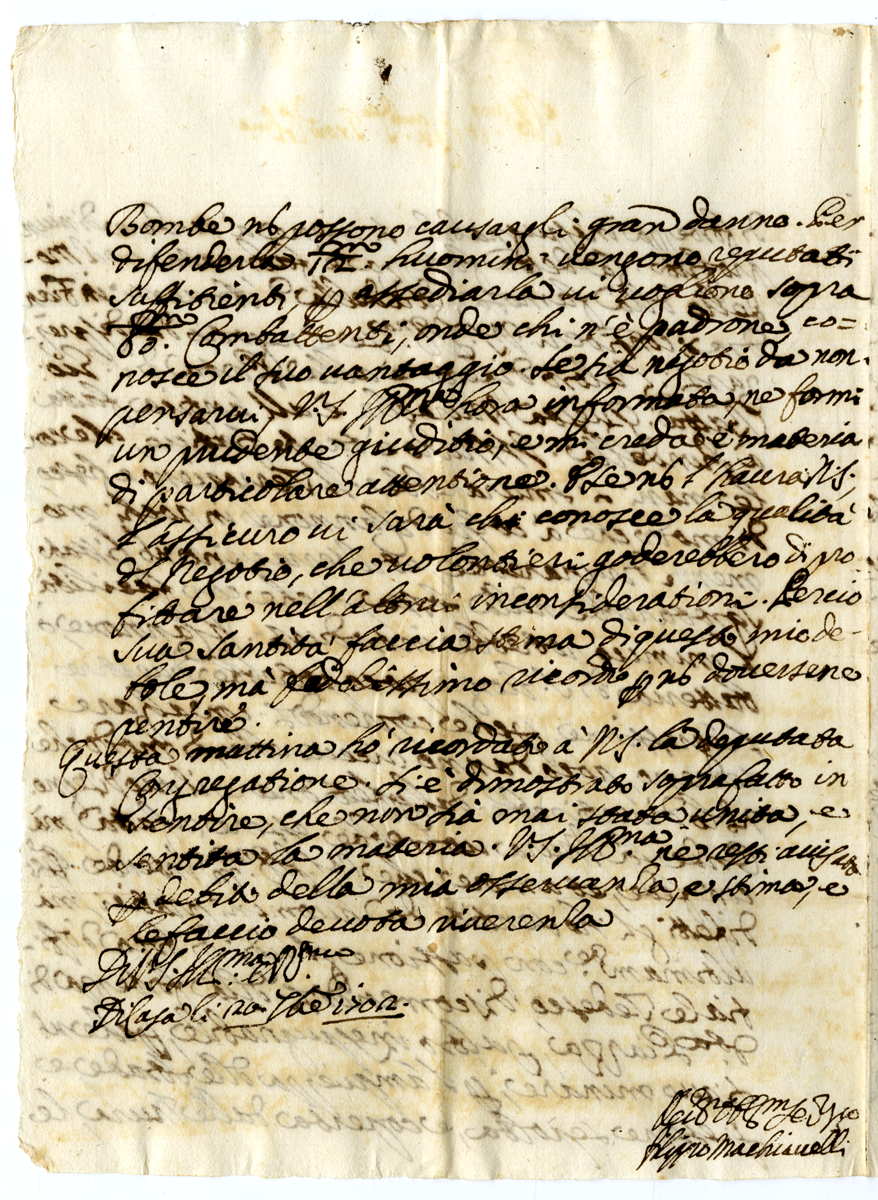 Bombe nō possono causargli gran danno. Per
difenderla huomini vengono reputati
suffitienti p assediarla vi vogliono sopra
Combattenti, onde chi n'è padrone, co=
nosce il suo vantaggio. Se sia negotio da non
pensarvi, V.S. Ill.ma hora informata, ne formi
un prudente giuditio, e mi creda è materia
di particolare attentione. Se nō l'haurà N.S.,
l'assicuro vi sarà chi conosce la qualità
del Negotio, che volontieri goderebbero di pro
fittare nell'altrui inconsiderationi. Perciò
sua santità faccia stima di questo mio de-
bole, mà fedelissimo ricordo p nō doversene
pentire.
Questa mattina hò ricordato à N.S. la deputata
Congregatione. Si è dimostrato soprafatto in
sentire, che non sia mai stata unita, e
sentita la materia. V.S. Ill.ma ne resti avisata
p debito della mia osservanza, e stima, e
le faccio devota riverenza
Di V.S. Ill.ma e R.ma
Di Casa li 20. 1702.
Ser
Filippo Machiavelli